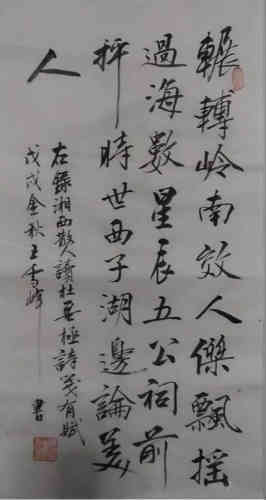 輾轉嶺南效人傑飄搖
過海數星辰五公祠前
抨時世西子湖邊論美
人
右錄湘西散人讀杜無極詩箋有賦
戊戌金秋王雪峰書